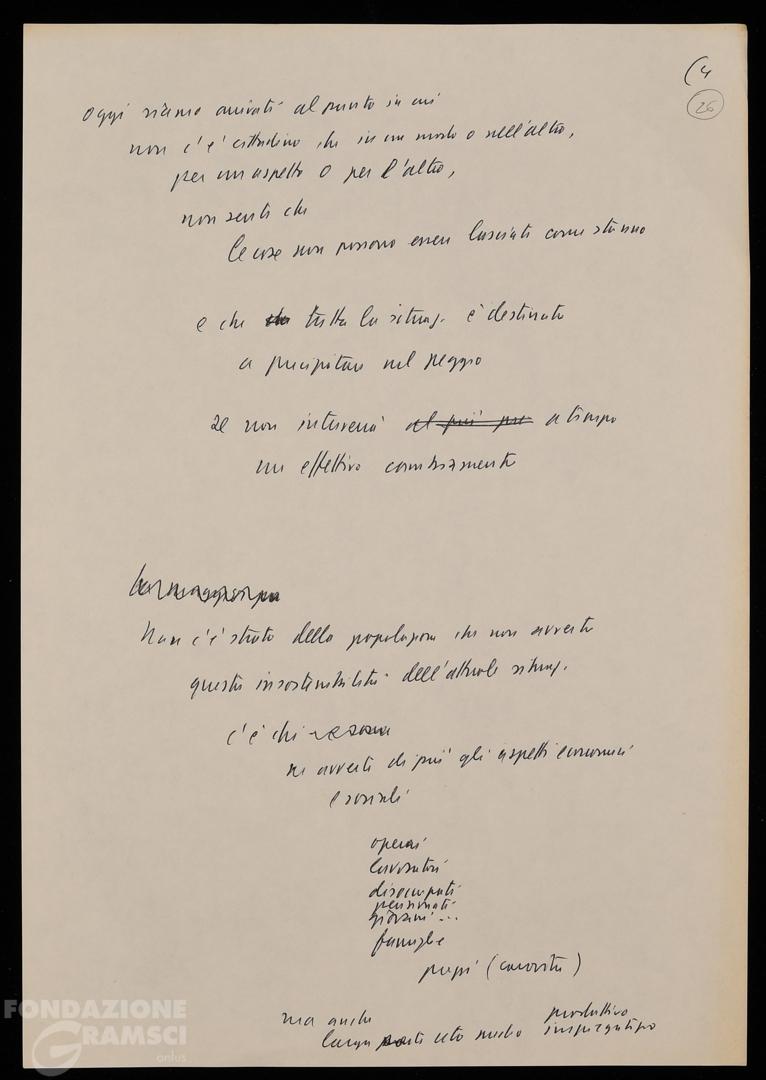 (4
26
Oggi siamo arrivati al punto in cui
non c'è cittadino che in un modo o nell'altro,
per un aspetto o per l'altro,
non senta che
le cose non possono essere lasciate come stanno
e che tutta la situaz. è destinata
a precipitare nel peggio
se non interverrà al più pre a tempo
un effettivo cambiamento
Non c'è strato della popolazione che non avverta
questa insostenibilità dell'attuale situaz.
c'è chi
ne avverte di più gli aspetti economici
e sociali
operai
lavoratori
disoccupati
pensionati
giovani ...
famiglie
prezzi (carovita)
ma anche
larga parte ceto medio produttivo
impiegatizio
FONDAZIONE
GRAMSCI
onlus